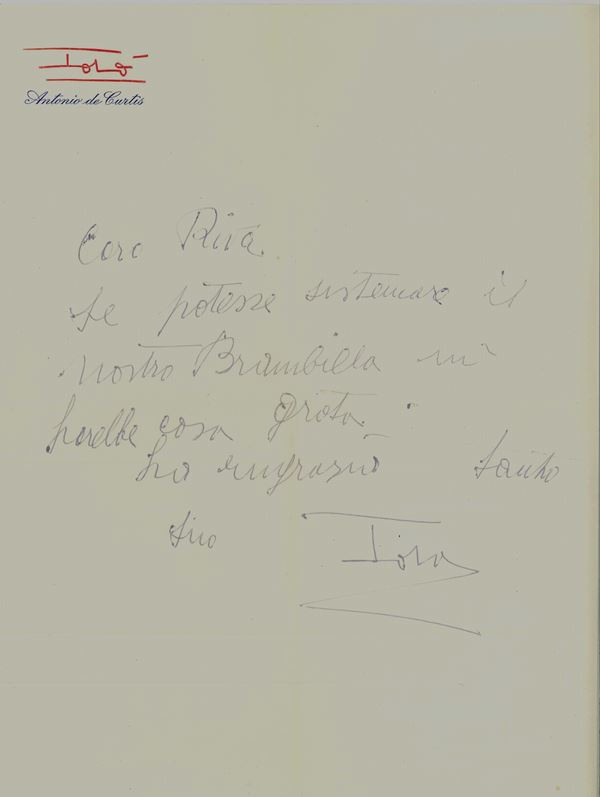 Totò
Antonio de Curtis
Caro Riva
se potesse sistemare il
nostro Brambilla mi
farebbe cosa grata.
La ringrazio tanto
Suo
Totò